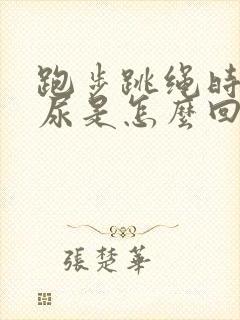 跑步跳绳时
尿是怎麼回
張楚華